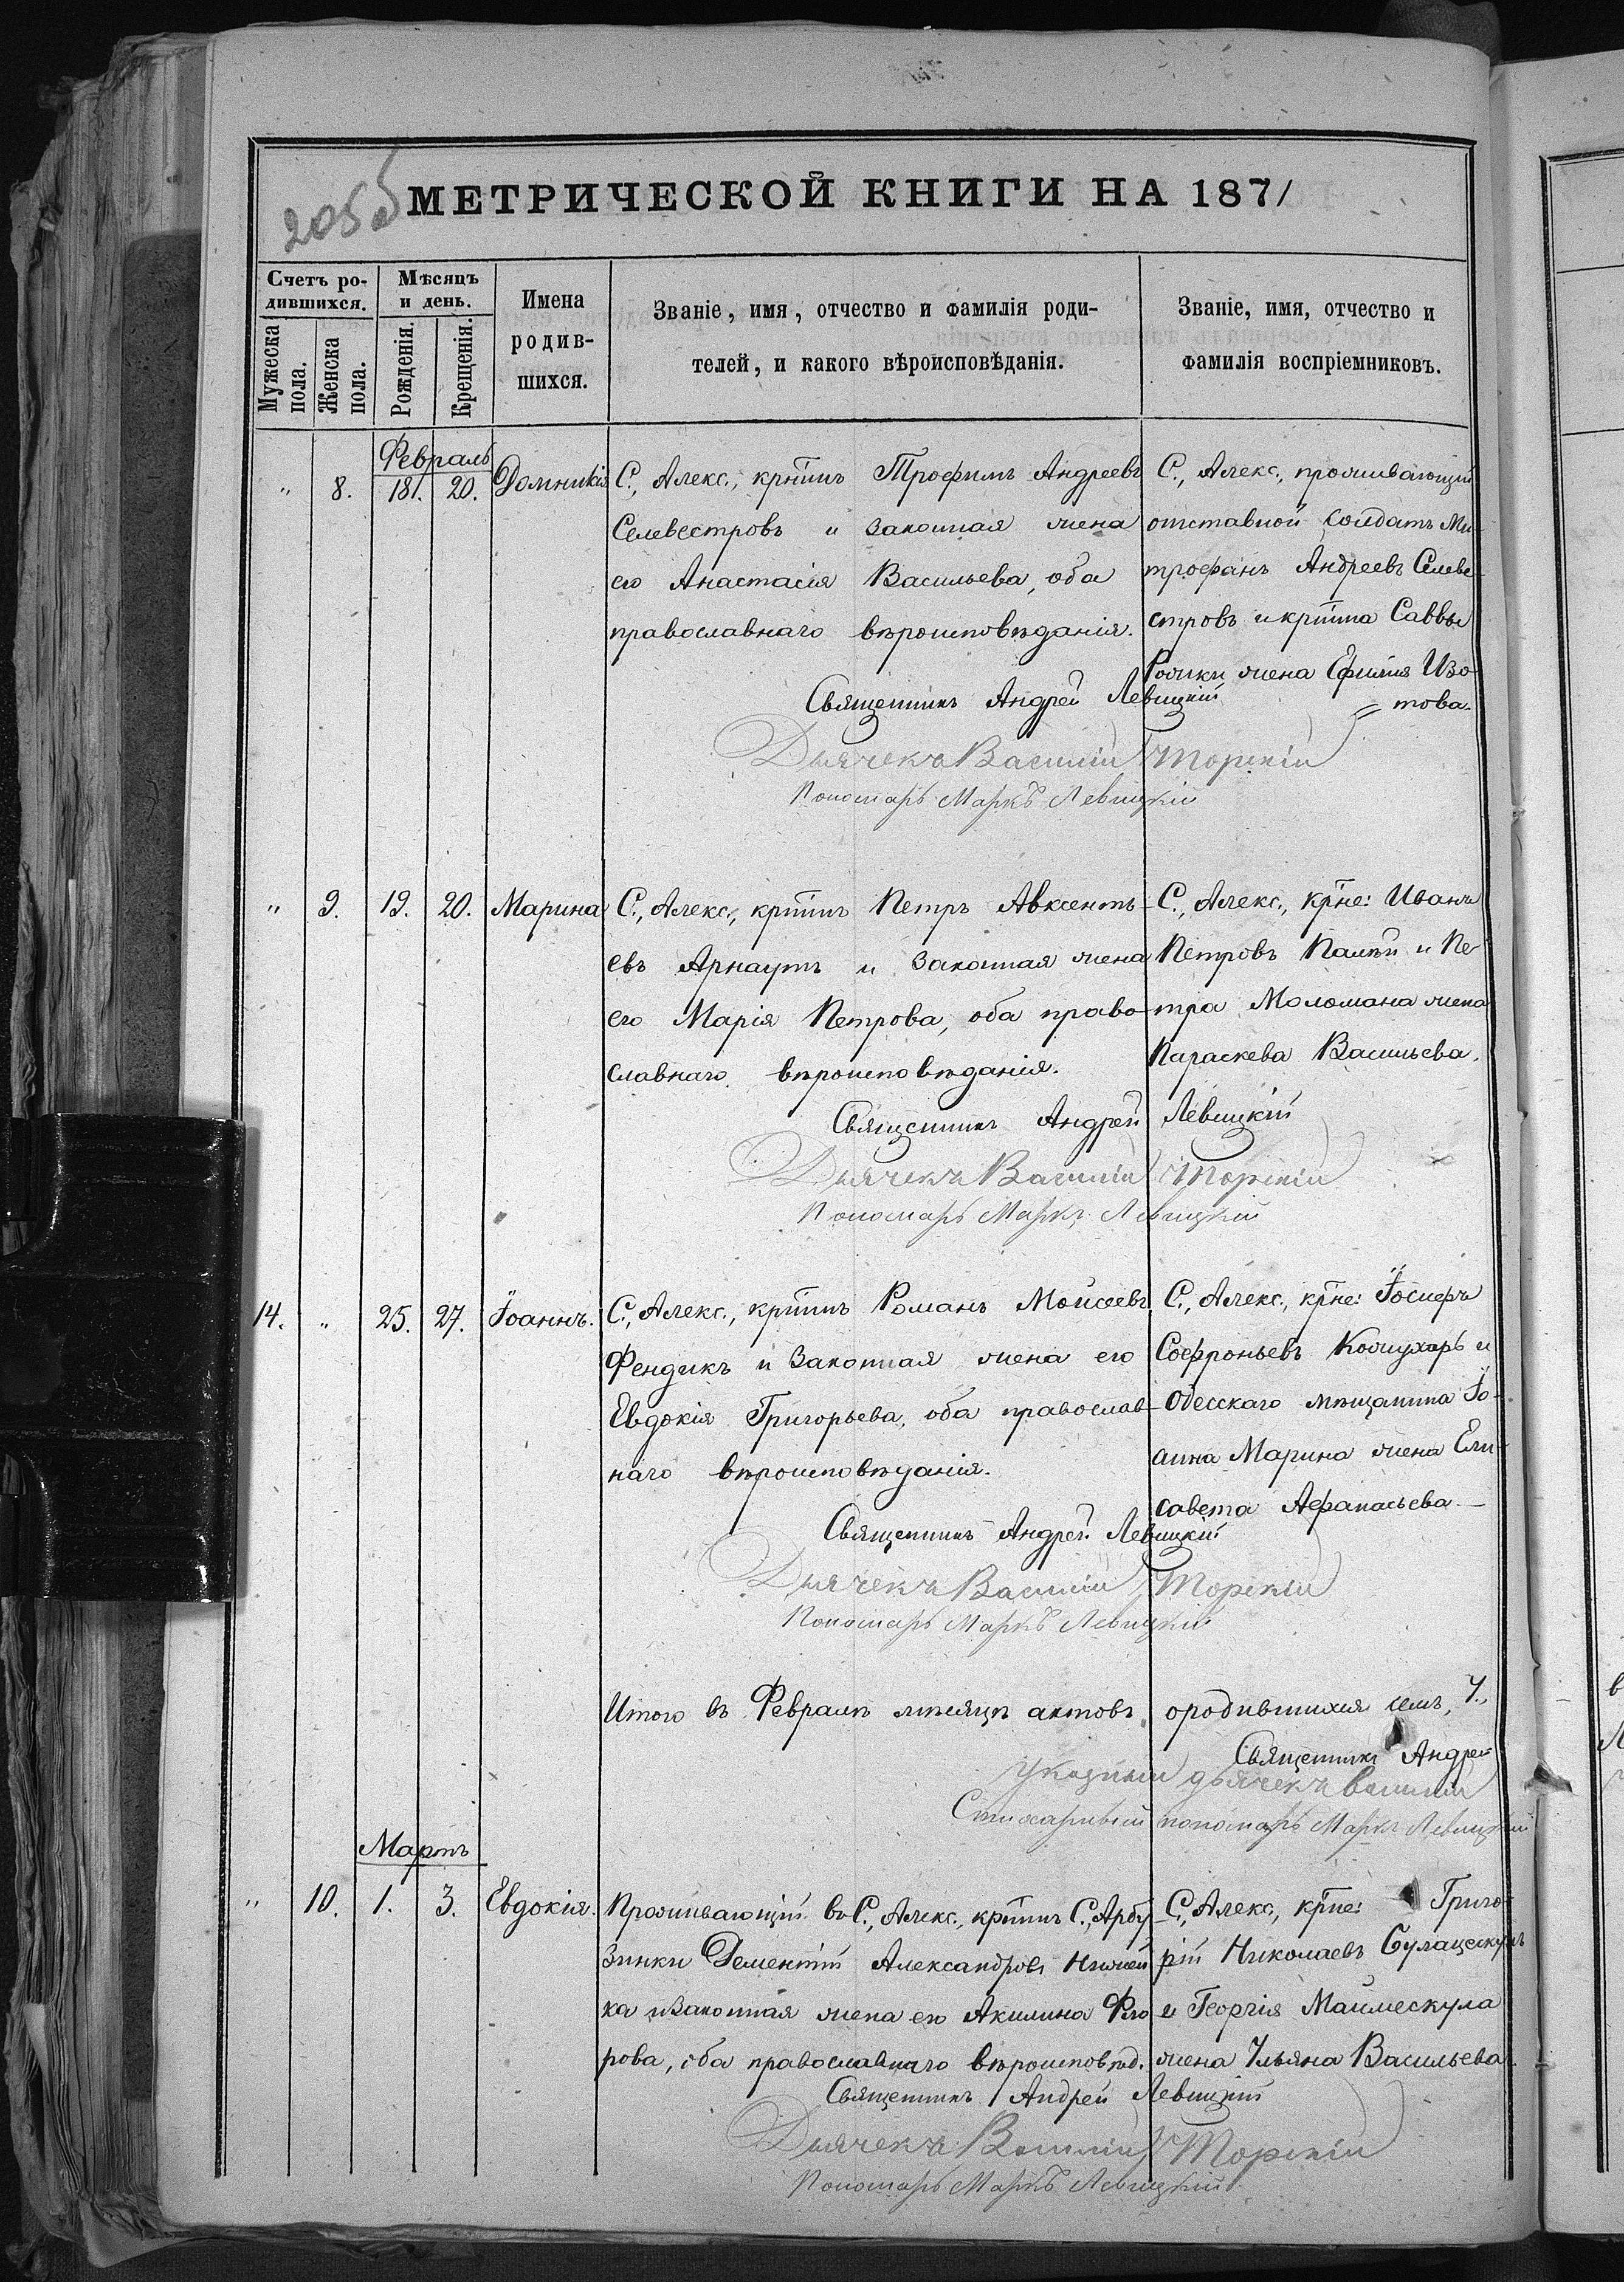 205об
МЕТРИЧЕСКОЙ КНИГИ НА 1871
Счетъ ро-
дившихся.
Мужеска
пола.
Женска
пола.
Мѣсяцъ
и день.
Рожденія.
Крещенія.
Имена
родив-
шихся.
Званіе, имя, отчество и фамилія роди-
телей, и какого вѣроисповѣданія.
Званіе, имя, отчество и
фамилія воспріемниковъ.
Февраль
" 8. 18. 20. Домникія
С., Алекс., крттинъ Трофимъ Андреевъ
Селевестровъ и законная жена
его Анастасія Васильева, оба
православнаго вѣроисповѣданія.
С., Алекс., проживающій
отставной солдатъ Ми-
трофанъ Андреевъ Селеве-
стровъ и крттина Саввы
жена Ефимія Изо-
това.
Священникъ Андрей Левицкій
Дьячекъ Василій Торскій
Пономарь Маркъ Левицкій
" 9. 19. 20. Марина
С., Алекс., крттинъ Петръ Авксенть-
евъ Арнаутъ и законная жена
его Марія Петрова, оба право-
славнаго вѣроисповѣданія.
С., Алекс., крне: Иванъ
Петровъ Палій и Пе-
тра Моломана жена
Параскева Васильева.
Священникъ Андрей Левицкій
Дьячекъ Василій Торскій
Пономарь Маркъ Левицкій
14. " 25. 27. Іоаннъ.
С., Алекс., крттинъ Романъ Мойсеевъ
Фендикъ и законная жена его
Евдокія Григорьева, оба православ-
наго вѣроисповѣданія.
С., Алекс., крне: Іосифъ
Софроньевъ Кожухарь и
Одесскаго мѣщанина Іо-
анна Марина жена Ели-
савета Афанасьева
Священникъ Андрей Левицкій
Дьячекъ Василій Торскій
Пономарь Маркъ Левицкій
Итого въ Февралѣ мѣсяцѣ актовъ о родившихся семь, 7.,
Священникъ Андрей
Указный дьячекъ Василій
Стихарный пономарь Маркъ Левицкій
Мартъ
" 10. 1. 3. Евдокія.
Проживающій въ С., Алекс., крттинъ С., Арбу-
зинки Дементій Александровъ
ка и законная жена его Акилина Фло
рова, оба православнаго вѣроисповѣд.
С., Алекс., крне: Григо-
рій Николаевъ
и Георгія Маймескула
жена Ульяна Васильева.
Священникъ Андрей Левицкій
Дьячекъ Василій Торскій
Пономарь Маркъ Левицкій